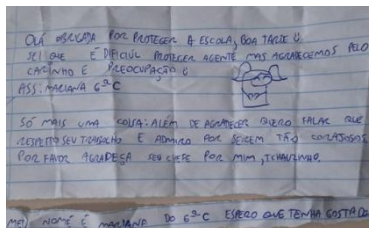 OLÁ OBRIGADA POR PROTEGER A ESCOLA, BOA TARDE U
SEI QUE É DIFICIUL PROTEGER AGENTE MAS AGRADECEMOS PELO
CARINHO E PREOCUPAÇÃO
ASS: MARIANA 6º C
SÓ MAIS UMA COISA: ALÉM DE AGRADECER QUERO FALAR QUE
RESPEITO SEU TRABALHO E ADMIRO POR SEREM TÃO CORAJOSOS
POR FAVOR AGRADEÇA SEU CHEFE POR MIM, TCHAUZINHO.
MEU NOME É MARIANA DO 6º C ESPERO QUE TENHA GOSTADO